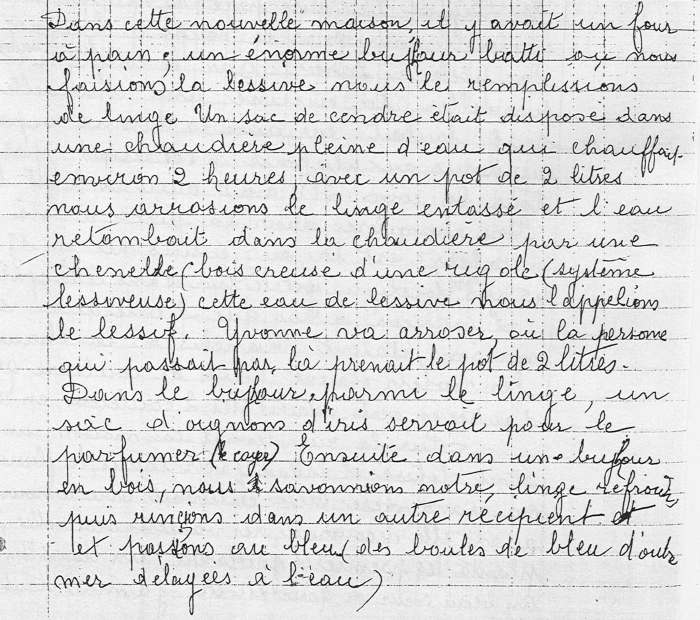 Dans cette nouvelle maison, il y avait un four
à pain, un énorme bujour batti où nous
faisions la lessive nous le remplissions
de linge Un sac de cendre était disposé dans
une chaudière pleine d'eau qui chauffait
environ 2 heures, avec un pot de 2 litres
nous arrosions le linge entassé et l'eau
retombait dans la chaudière par une
chenelle (bois creusé d'une rigole (système
lessiveuse) cette eau de lessive nous l'appelions
le lessif. Yvonne va arroser, où la persone
qui passait par là prenait le pot de 2 litres.
Dans le bujour, parmi le linge, un
sac d'oignons d'iris servait pour le
parfumer Ensuite dans un bujour
en bois, nous savonnions notre linge refroidi,
puis rincions dans un autre récipient et
et passions au bleu (des boules de bleu d'outre
mer délayées à l'eau)